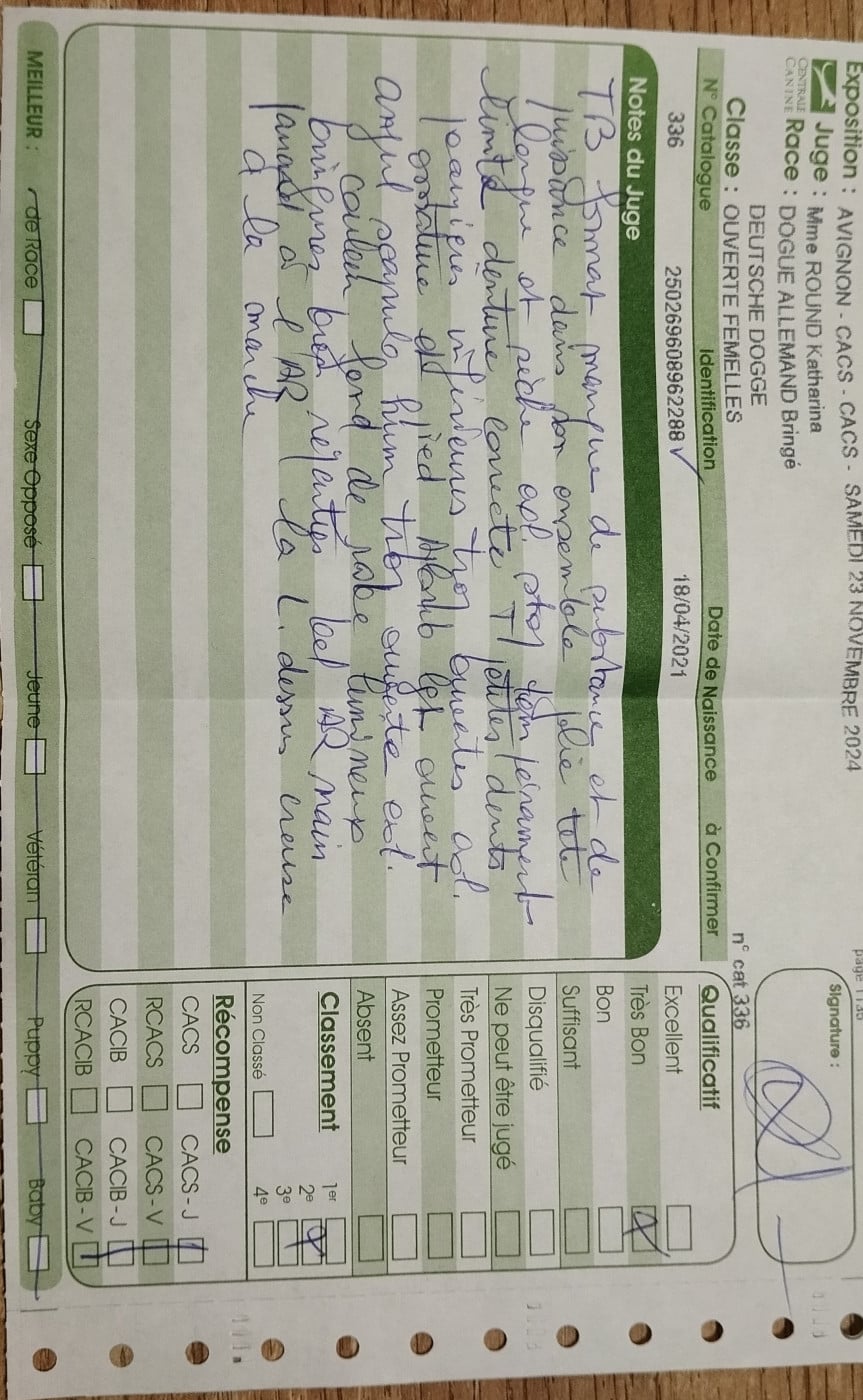 page 1 / 36
Exposition : AVIGNON - CACS - CACS - SAMEDI 23 NOVEMBRE 2024
CENTRALE CANINE
Juge : Mme ROUND Katharina
Race : DOGUE ALLEMAND Bringé
DEUTSCHE DOGGE
Classe : OUVERTE FEMELLES
Signature :
n° cat 336
N° Catalogue Identification Date de Naissance à Confirmer
336 250269608962288 18/04/2021
Notes du Juge
TB format manque de substance et de
puissance dans son ensemble jolie tête
longue et sèche
limite denture correcte petites dents
paupières inférieures trop ouvertes
ossature et pied ouvert
angul scapulo hum trop ouverte
couleur fond de robe lumineux
bringures bien réparties bel AR main
à l'AR la L. dessus creuse
à la marche
Qualificatif
Excellent
Très Bon
Bon
Suffisant
Disqualifié
Ne peut être jugé
Très Prometteur
Prometteur
Assez Prometteur
Absent
Classement
1er
2e
3e
Non Classé 4e
Récompense
CACS CACS - J
RCACS CACS - V
CACIB CACIB - J
RCACIB CACIB - V
MEILLEUR : de Race Sexe Opposé Jeune Vétéran Puppy Baby